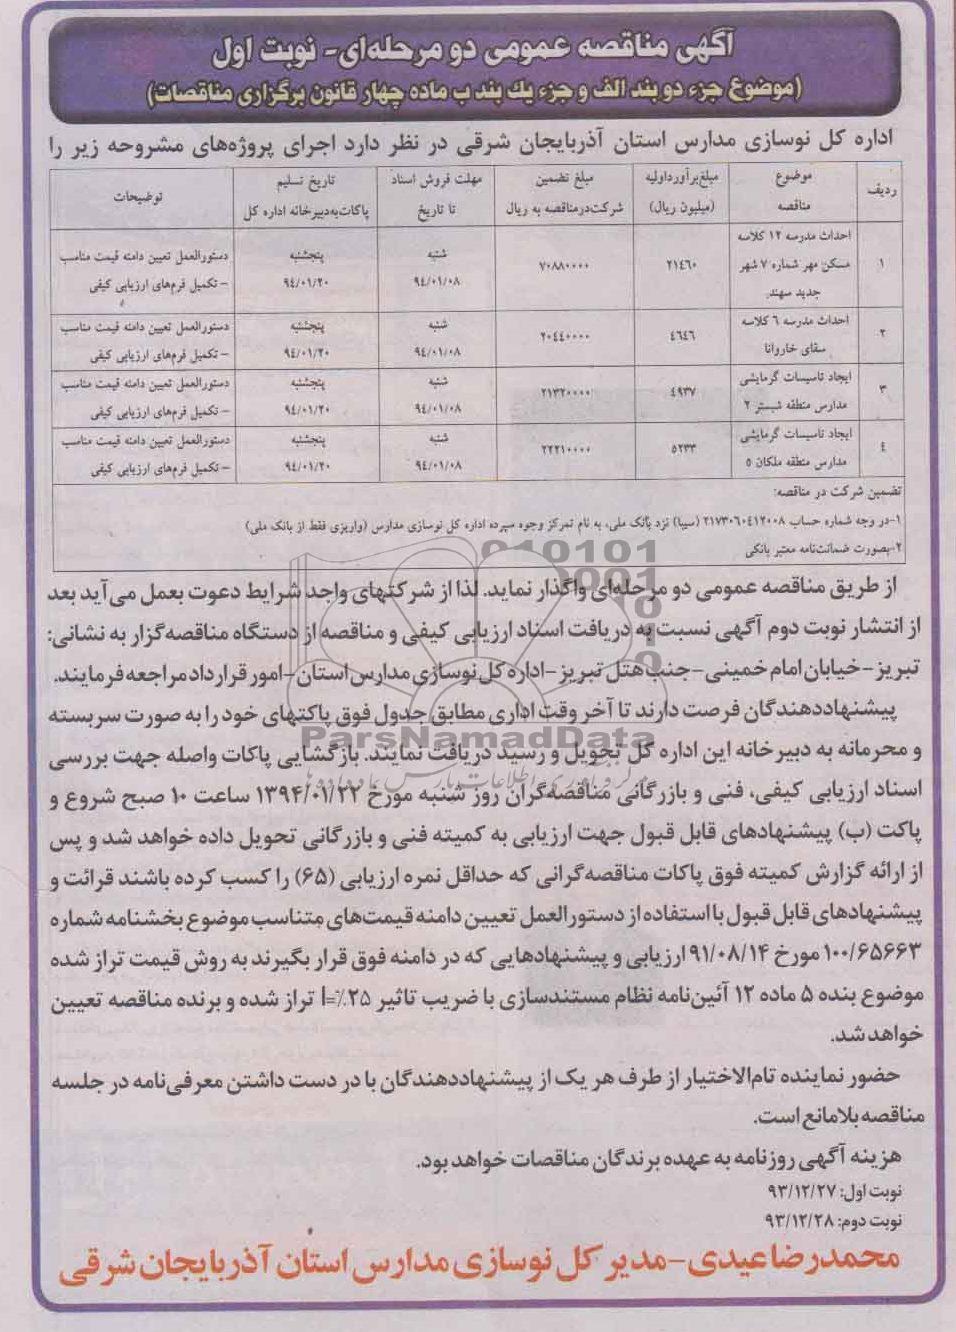 آگهی مناقصه عمومی دو مرحله‌ای- نوبت اول
(موضوع جزء دو بند الف و جزء یك بند ب ماده چهار قانون برگزاری مناقصات)
اداره کل نوسازی مدارس استان آذربایجان شرقی در نظر دارد اجرای پروژه‌های مشروحه زیر را
ردیف | موضوع مناقصه | مبلغ‌برآورداولیه (میلیون ریال) | مبلغ تضمین شرکت‌درمناقصه به ریال | مهلت فروش اسناد تا تاریخ | تاریخ تسلیم پاکات‌به‌دبیرخانه اداره کل | توضیحات
۱ | احداث مدرسه ۱۲ کلاسه مسکن مهر شماره ۷ شهر جدید سهند | ۲۱٤٦۰ | ۷۰۸۸۰۰۰۰ | شنبه ۹٤/۰۱/۰۸ | پنجشنبه ۹٤/۰۱/۲۰ | دستورالعمل تعیین دامنه قیمت مناسب – تکمیل فرم‌های ارزیابی کیفی
۲ | احداث مدرسه ٦ کلاسه سقای خاروانا | ٤٦٤٦ | ۲۰٤٤۰۰۰۰ | شنبه ۹٤/۰۱/۰۸ | پنجشنبه ۹٤/۰۱/۲۰ | دستورالعمل تعیین دامنه قیمت مناسب – تکمیل فرم‌های ارزیابی کیفی
۳ | ایجاد تاسیسات گرمایشی مدارس منطقه شبستر ۲ | ٤۹۳۷ | ۲۱۳۲۰۰۰۰ | شنبه ۹٤/۰۱/۰۸ | پنجشنبه ۹٤/۰۱/۲۰ | دستورالعمل تعیین دامنه قیمت مناسب – تکمیل فرم‌های ارزیابی کیفی
٤ | ایجاد تاسیسات گرمایشی مدارس منطقه ملکان ٥ | ٥۲۳۳ | ۲۲۲۱۰۰۰۰ | شنبه ۹٤/۰۱/۰۸ | پنجشنبه ۹٤/۰۱/۲۰ | دستورالعمل تعیین دامنه قیمت مناسب – تکمیل فرم‌های ارزیابی کیفی
تضمین شرکت در مناقصه:
۱-در وجه شماره حساب ۲۱۷۳۰٦۰٤۱۲۰۰۸ (سیبا) نزد بانک ملی، به نام تمرکز وجوه سپرده اداره کل نوسازی مدارس (واریزی فقط از بانک ملی)
۲-بصورت ضمانت‌نامه معتبر بانکی
از طریق مناقصه عمومی دو مرحله‌ای واگذار نماید. لذا از شرکتهای واجد شرایط دعوت بعمل می‌آید بعد
از انتشار نوبت دوم آگهی نسبت به دریافت اسناد ارزیابی کیفی و مناقصه از دستگاه مناقصه‌گزار به نشانی:
تبریز-خیابان امام خمینی-جنب هتل تبریز-اداره کل نوسازی مدارس استان-امور قرارداد مراجعه فرمایند.
پیشنهاددهندگان فرصت دارند تا آخر وقت اداری مطابق جدول فوق پاکتهای خود را به صورت سربسته
و محرمانه به دبیرخانه این اداره کل تحویل و رسید دریافت نمایند. بازگشایی پاکات واصله جهت بررسی
اسناد ارزیابی کیفی، فنی و بازرگانی مناقصه‌گران روز شنبه مورخ ۱۳۹۴/۰۱/۲۲ ساعت ۱۰ صبح شروع و
پاکت (ب) پیشنهادهای قابل قبول جهت ارزیابی به کمیته فنی و بازرگانی تحویل داده خواهد شد و پس
از ارائه گزارش کمیته فوق پاکات مناقصه‌گرانی که حداقل نمره ارزیابی (۶۵) را کسب کرده باشند قرائت و
پیشنهادهای قابل قبول با استفاده از دستورالعمل تعیین دامنه قیمت‌های متناسب موضوع بخشنامه شماره
۱۰۰/۶۵۶۶۳ مورخ ۹۱/۰۸/۱۴ ارزیابی و پیشنهادهایی که در دامنه فوق قرار بگیرند به روش قیمت تراز شده
موضوع بنده ۵ ماده ۱۲ آئین‌نامه نظام مستندسازی با ضریب تاثیر ۲۵٪=I تراز شده و برنده مناقصه تعیین
خواهد شد.
حضور نماینده تام‌الاختیار از طرف هر یک از پیشنهاددهندگان با در دست داشتن معرفی‌نامه در جلسه
مناقصه بلامانع است.
هزینه آگهی روزنامه به عهده برندگان مناقصات خواهد بود.
نوبت اول: ۹۳/۱۲/۲۷
نوبت دوم: ۹۳/۱۲/۲۸
محمدرضا عیدی-مدیر کل نوسازی مدارس استان آذربایجان شرقی
ParsNamadData